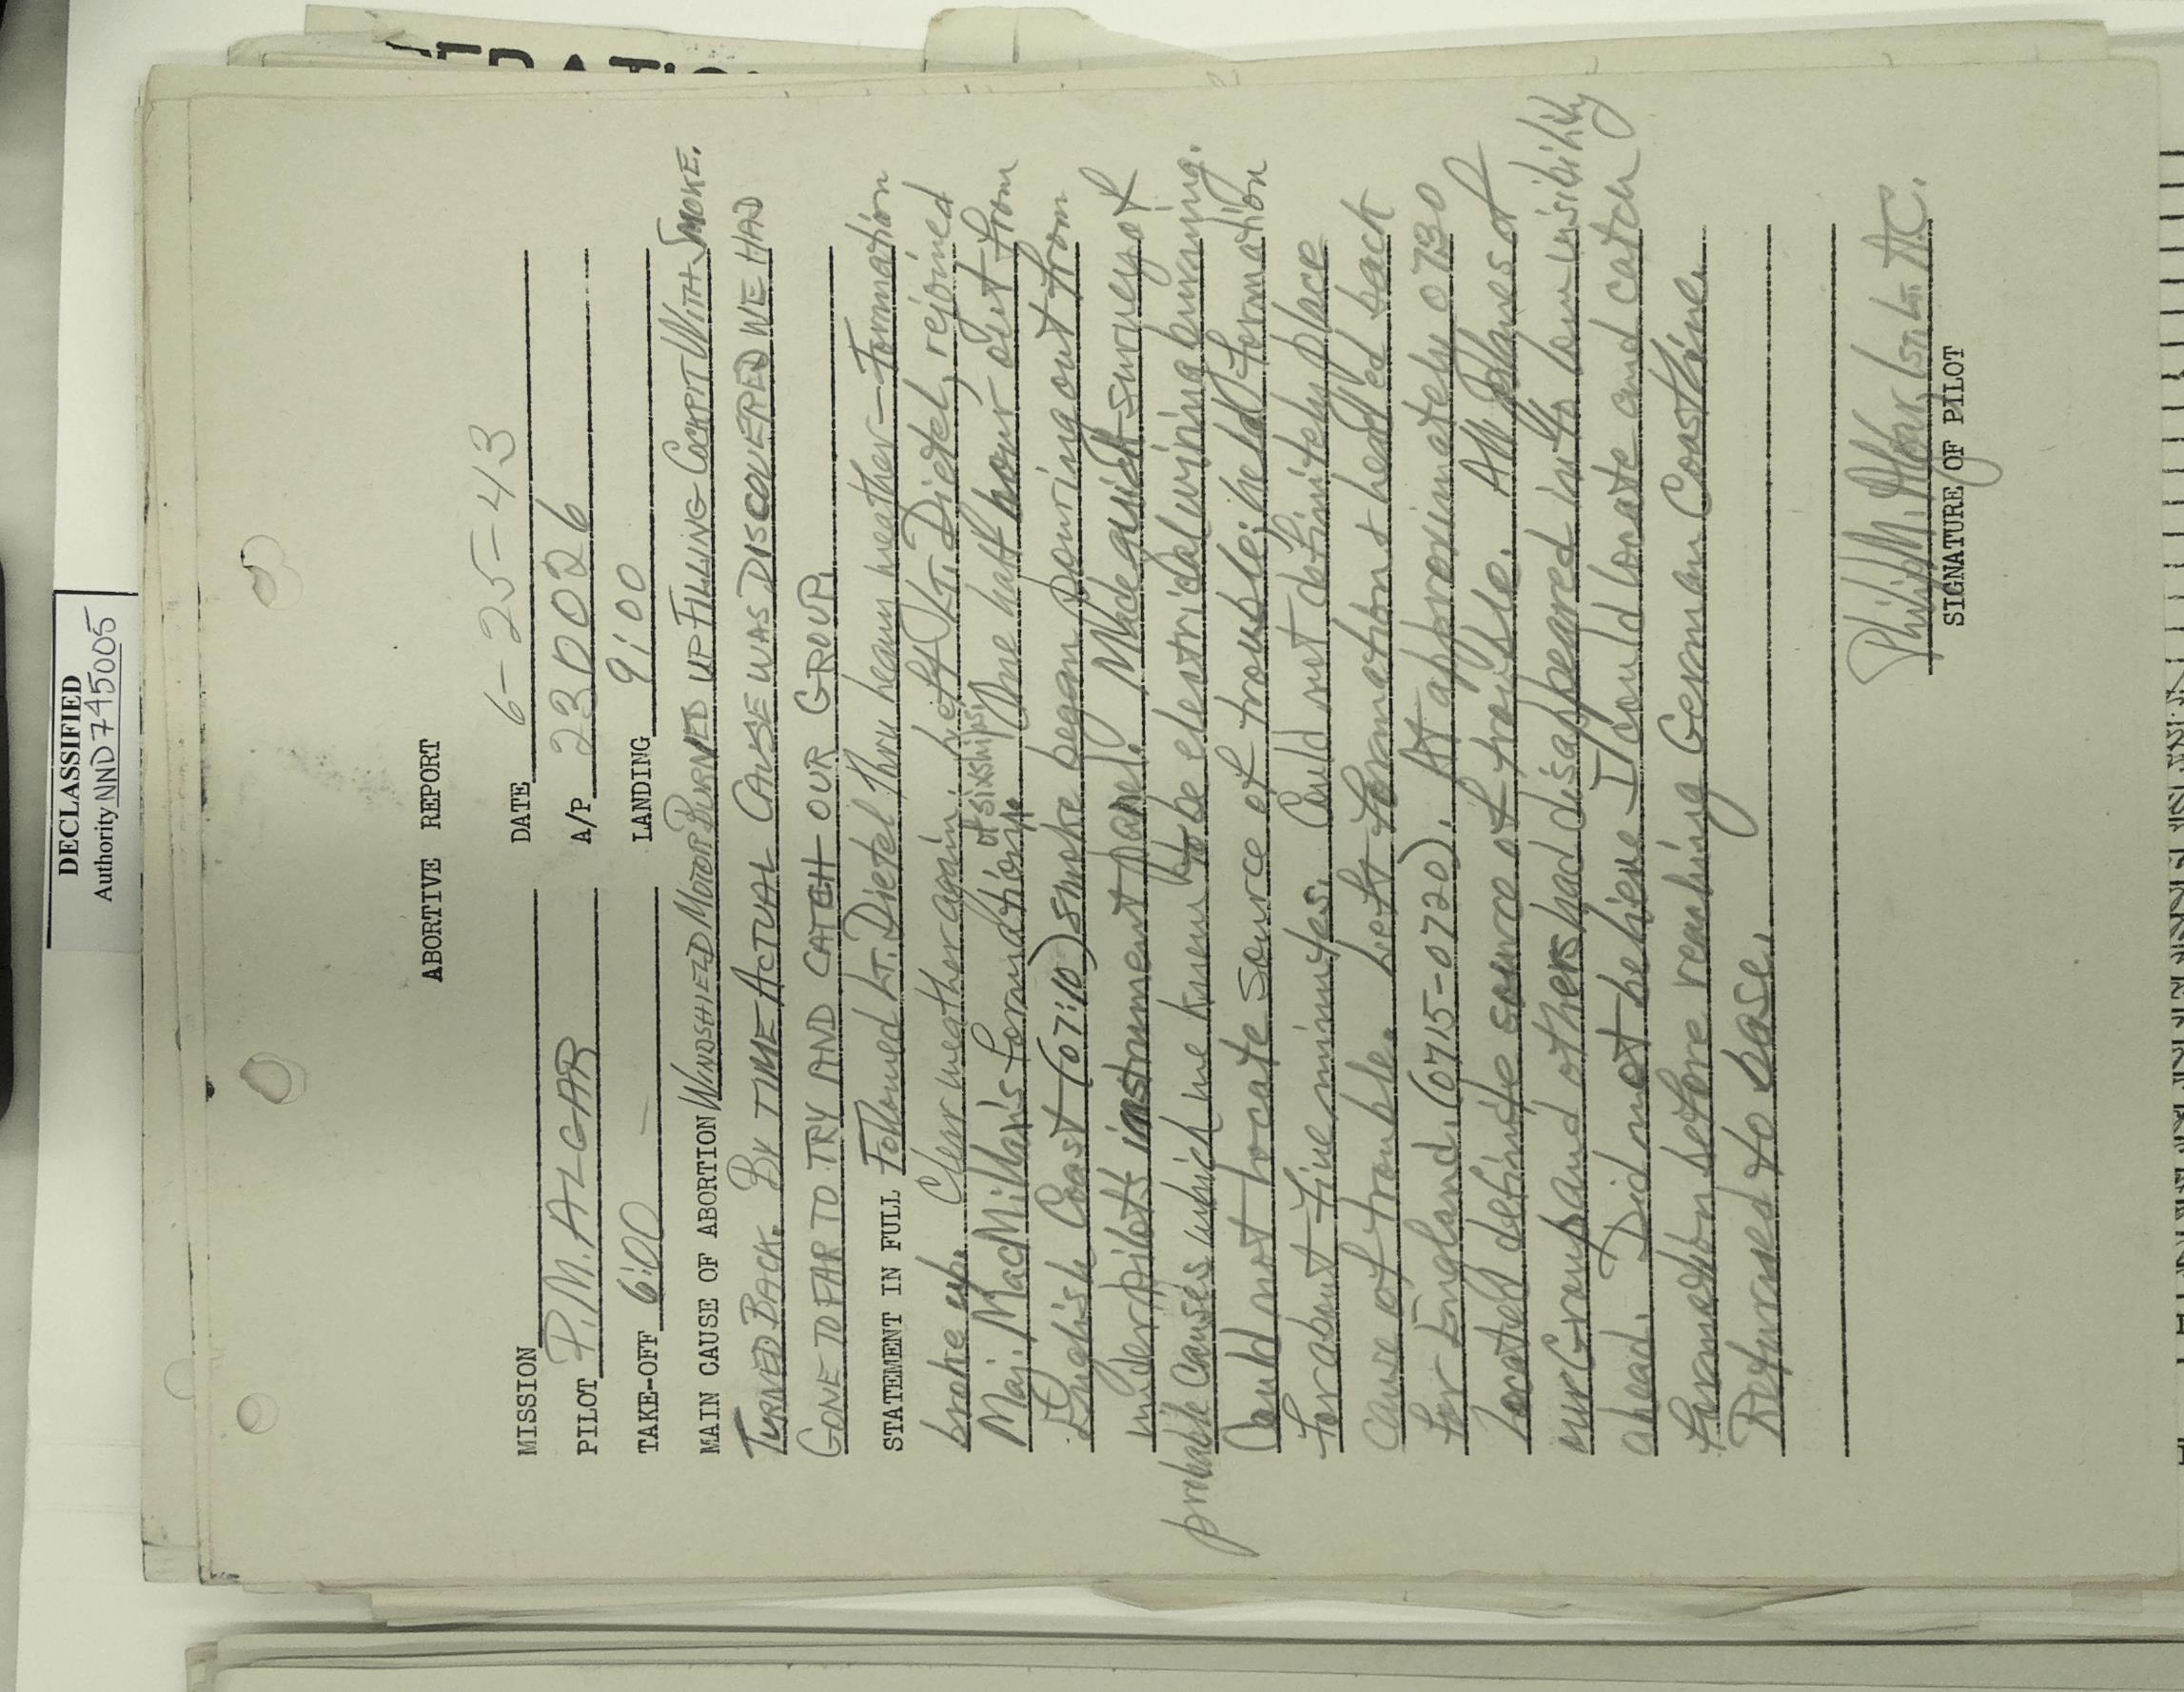 DECLASSIFIED
Authority NND 745005
ABORTIVE REPORT
MISSION DATE 6-25-43
PILOT P.M. ALGAR A/P 230026
TAKE-OFF 6:00 LANDING 9:00
MAIN CAUSE OF ABORTION WINDSHIELD MOTOR BURNED UP FILLING COCKPIT WITH SMOKE.
TURNED BACK. BY TIME ACTUAL CAUSE WAS DISCOVERED WE HAD
GONE TO FAR TO TRY AND CATCH OUR GROUP.
STATEMENT IN FULL Followed Lt. Dietel thru heavy weather - Formation
broke up. Clear weather again. Left Lt. Dietel, rejoined
Maj. MacMillan's formation of six ships. One half hour out from
English Coast (07:10) smoke began pouring out from
under pilot's instrument panel. Made quick survey of
probable causes which we knew to be electrical wiring burning.
Could not locate source of trouble; held formation
for about five minutes. Could not definitely place
cause of trouble. Left formation & headed back
for England. (0715-0720). At approximately 0730
located definite source of trouble. All planes of
our Group and others had disappeared into low visibility
ahead. Did not believe I could locate and catch
formation before reaching German Coastline.
Returned to base.
Philip M. Algar, 1st Lt. A.C.
SIGNATURE OF PILOT